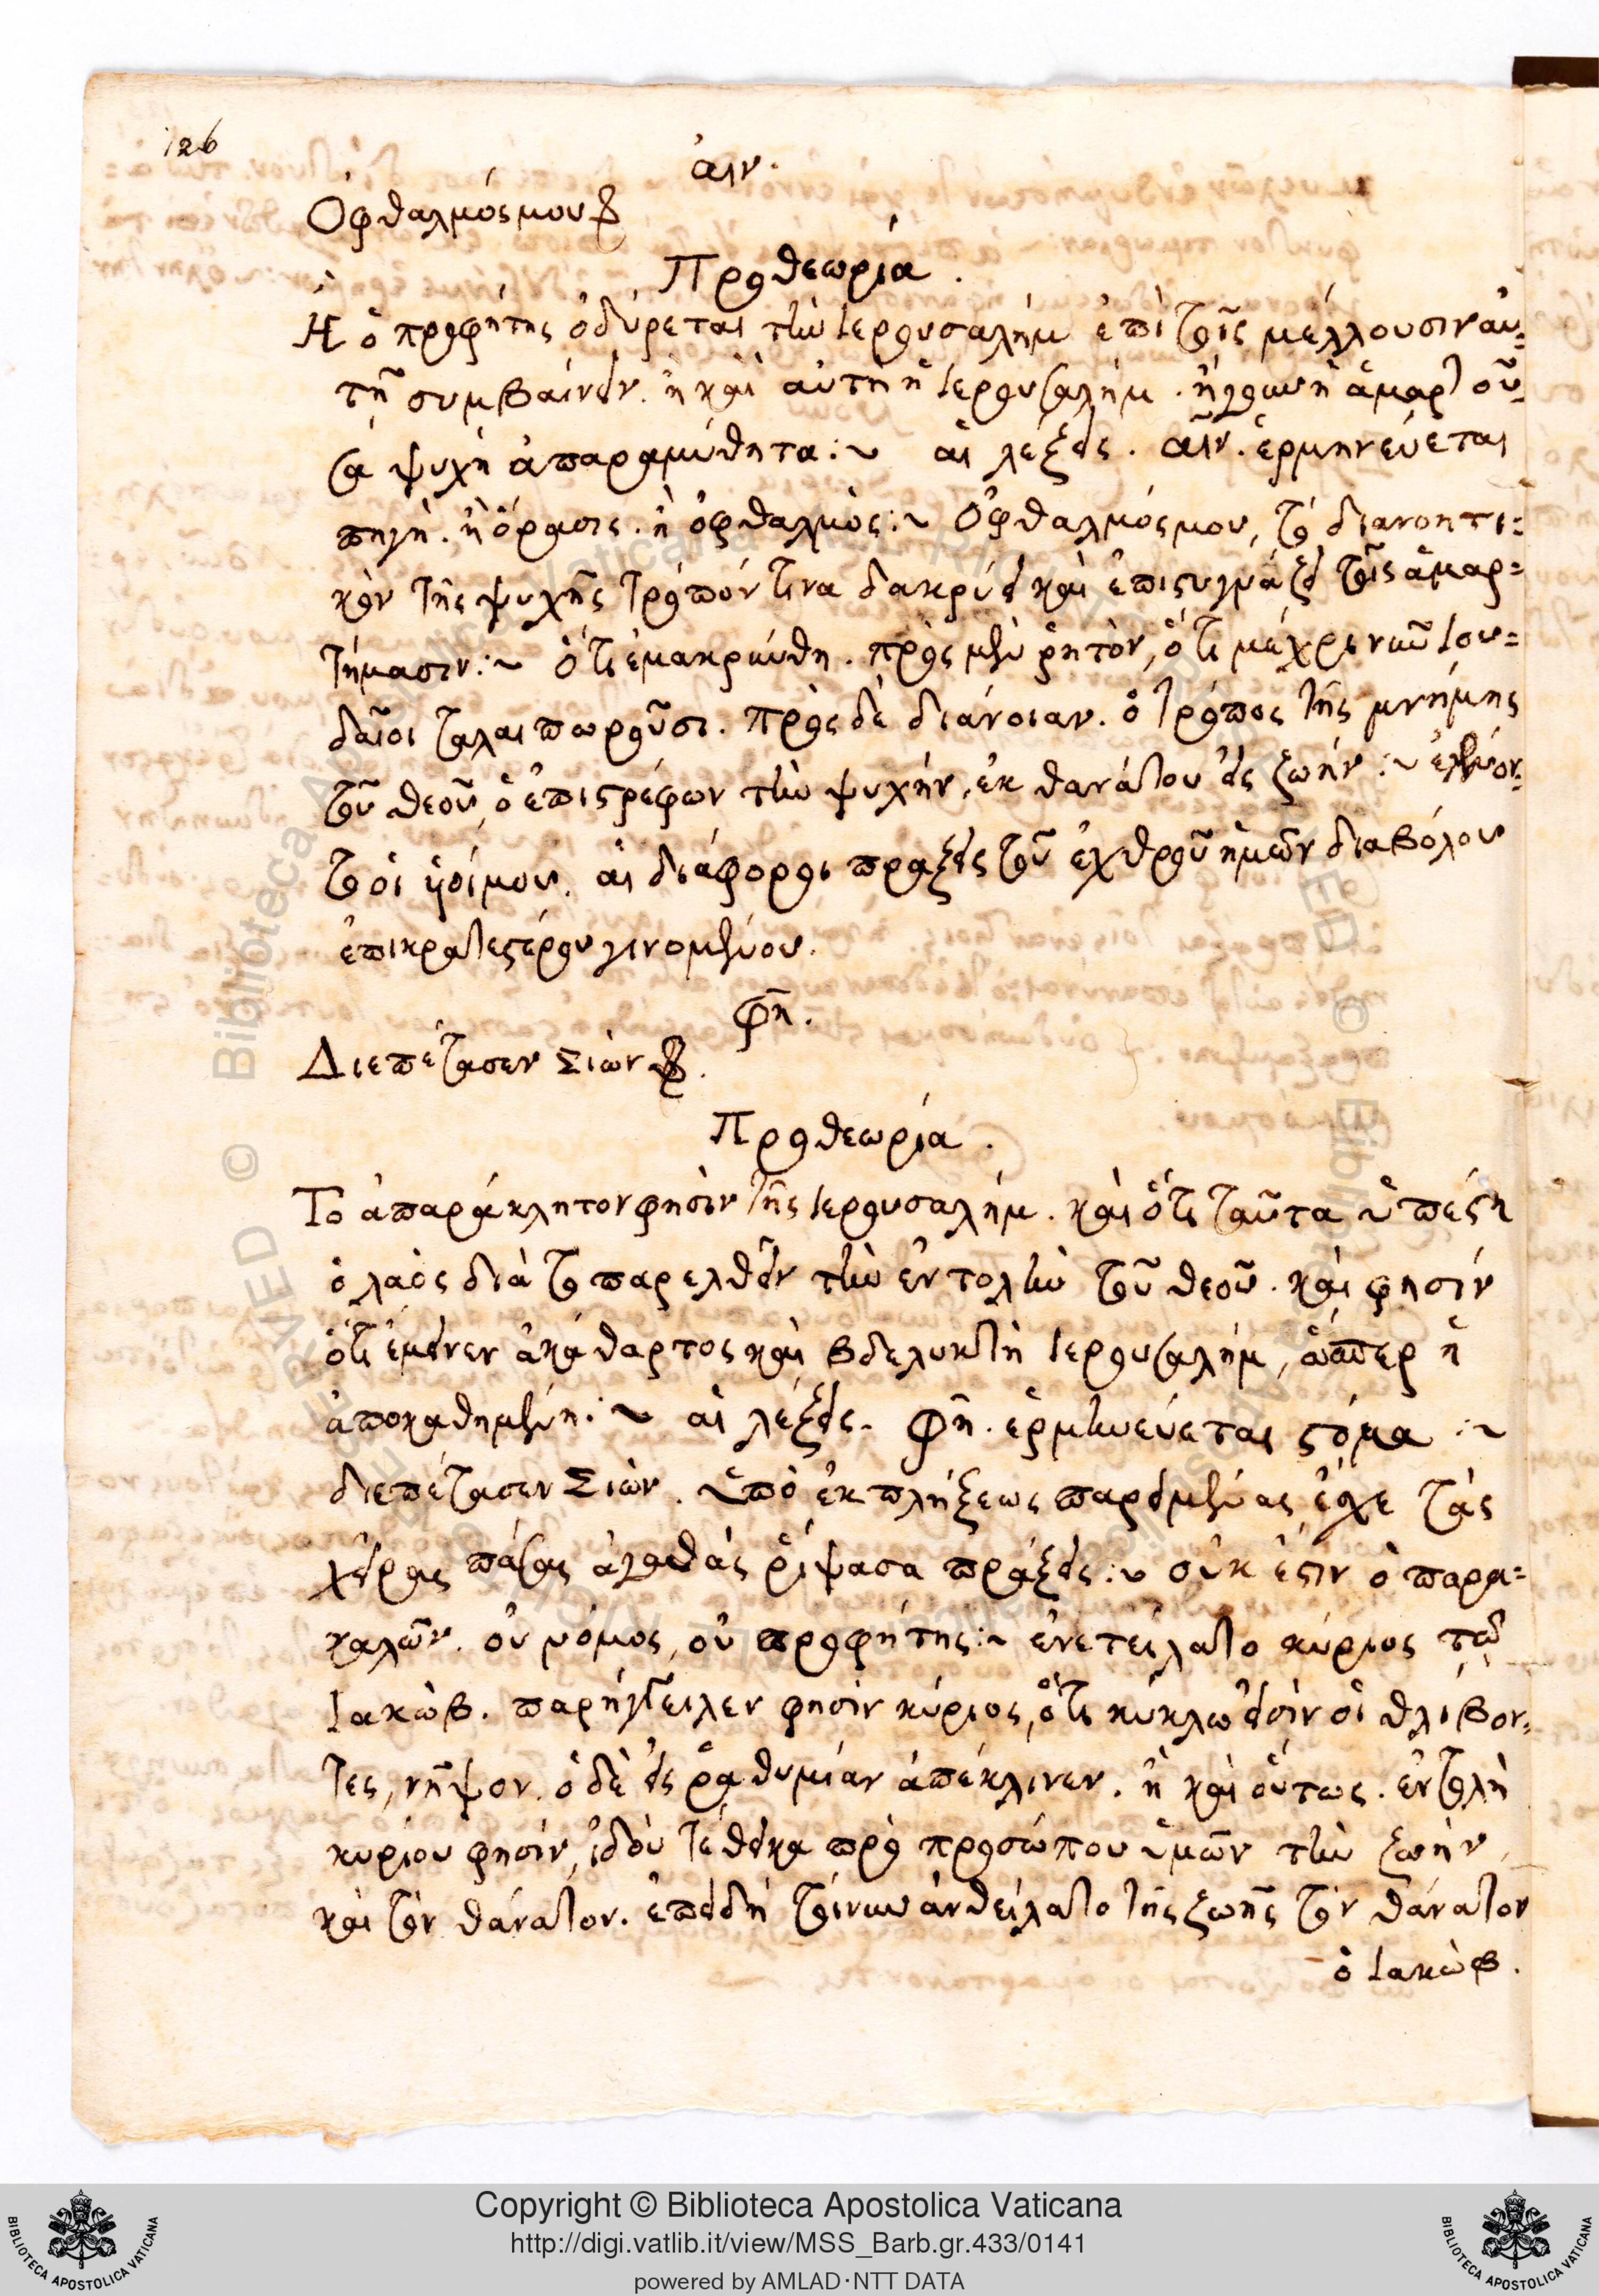 126
ἀιν.
Ὀφθαλμός μου &
Προθεωρία.
Ἢ ὁ προφήτης ὀδύρεται τὴν Ἱερουσαλήμ ἐπὶ τοῖς μέλλουσιν αὐ=
τῇ συμβαίνειν. ἢ καὶ αὐτὴ ἡ Ἱερουσαλήμ. ἤγουν ἡ ἁμαρτοῦ=
σα ψυχὴ ἀπαραμύθητα:~ αἱ λέξεις. αἲν. ἑρμηνεύεται
πηγή. ἢ ὅρασις. ἢ ὀφθαλμός:~ Ὀφθαλμός μου, τὸ διανοητι=
κὸν τῆς ψυχῆς τρόπόν τινα δακρύει καὶ ἐπιστυγνάζει τοῖς ἁμαρ=
τήμασιν:~ ὅτι ἐμακρύνθη. πρὸς μὲν ῥητὸν, ὅτι μέχρι νῦν Ἰου=
δαῖοι ταλαιπωροῦσι. πρὸς δὲ διάνοιαν. ὁ τρόπος τῆς μνήμης
τοῦ θεοῦ, ὁ ἐπιστρέφων τὴν ψυχήν, ἐκ θανάτου εἰς ζωήν:~ ἐγένον=
το οἱ υἱοί μου. αἱ διάφοροι πράξεις τοῦ ἐχθροῦ ἡμῶν διαβόλου
ἐπικρατεστέρου γινομένου.
φῆ.
Διεπέτασεν Σιὼν &.
Προθεωρία.
Τὸ ἀπαράκλητον φησὶν τῆς Ἱερουσαλήμ. καὶ ὅτι ταῦτα ὑπέστη
ὁ λαὸς διὰ τὸ παρελθεῖν τὴν ἐντολὴν τοῦ θεοῦ. καὶ φησίν
ὅτι ἔμεινεν ἀκάθαρτος καὶ βδελυκτὴ Ἱερουσαλήμ, ὥσπερ ἡ
ἀποκαθημένη:~ αἱ λέξεις. Φῆ. ἑρμηνεύεται στόμα:~
διεπέτασεν Σιὼν. ὑπὸ ἐκπλήξεως παρειμένας εἶχε τὰς
χεῖρας πάσας ἀγαθάς ῥίψασα πράξεις:~ οὐκ ἔστιν ὁ παρα=
καλῶν. οὐ νόμος, οὐ προφήτης:~ ἐνετείλατο κύριος τῷ
Ἰακὼβ. παρήγγειλεν φησὶν κύριος, ὅτι κύκλῳ εἰσὶν οἱ θλίβον=
τες, νῆψον. ὁ δὲ εἰς ῥαθυμίαν ἀπέκλινεν. ἢ καὶ οὕτως. ἐντολὴ
κυρίου φησίν, ἰδοὺ τέθεικα πρὸ προσώπου ὑμῶν τὴν ζωήν,
καὶ τὸν θάνατον. ἐπειδὴ τοίνυν ἀνθείλατο τῆς ζωῆς τὸν θάνατον
ὁ Ἰακὼβ.
Copyright © Biblioteca Apostolica Vaticana
http://digi.vatlib.it/view/MSS_Barb.gr.433/0141
powered by AMLAD·NTT DATA
BIBLIOTECA APOSTOLICA VATICANA
BIBLIOTECA APOSTOLICA VATICANA